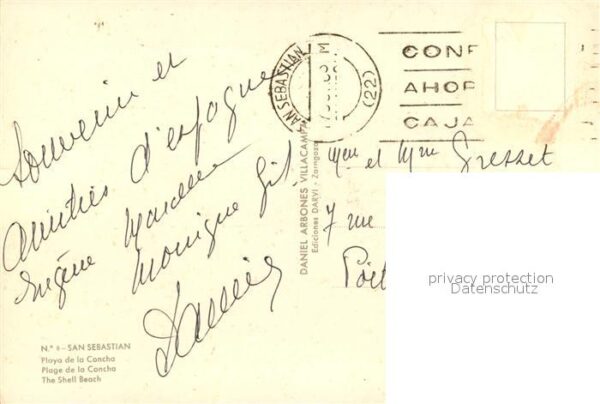 Souvenir et
Amitiés d'espagne
Eugène Marcelle
Monique
N.º 9 - SAN SEBASTIAN
Playa de la Concha
Plage de la Concha
The Shell Beach
DANIEL ARBONES VILLACAMPA
Ediciones DARVI - Zaragoza
SAN SEBASTIAN
M
(22)
CONF
AHOR
CAJA
et Mme Gresset
7 rue
privacy protection
Datenschutz